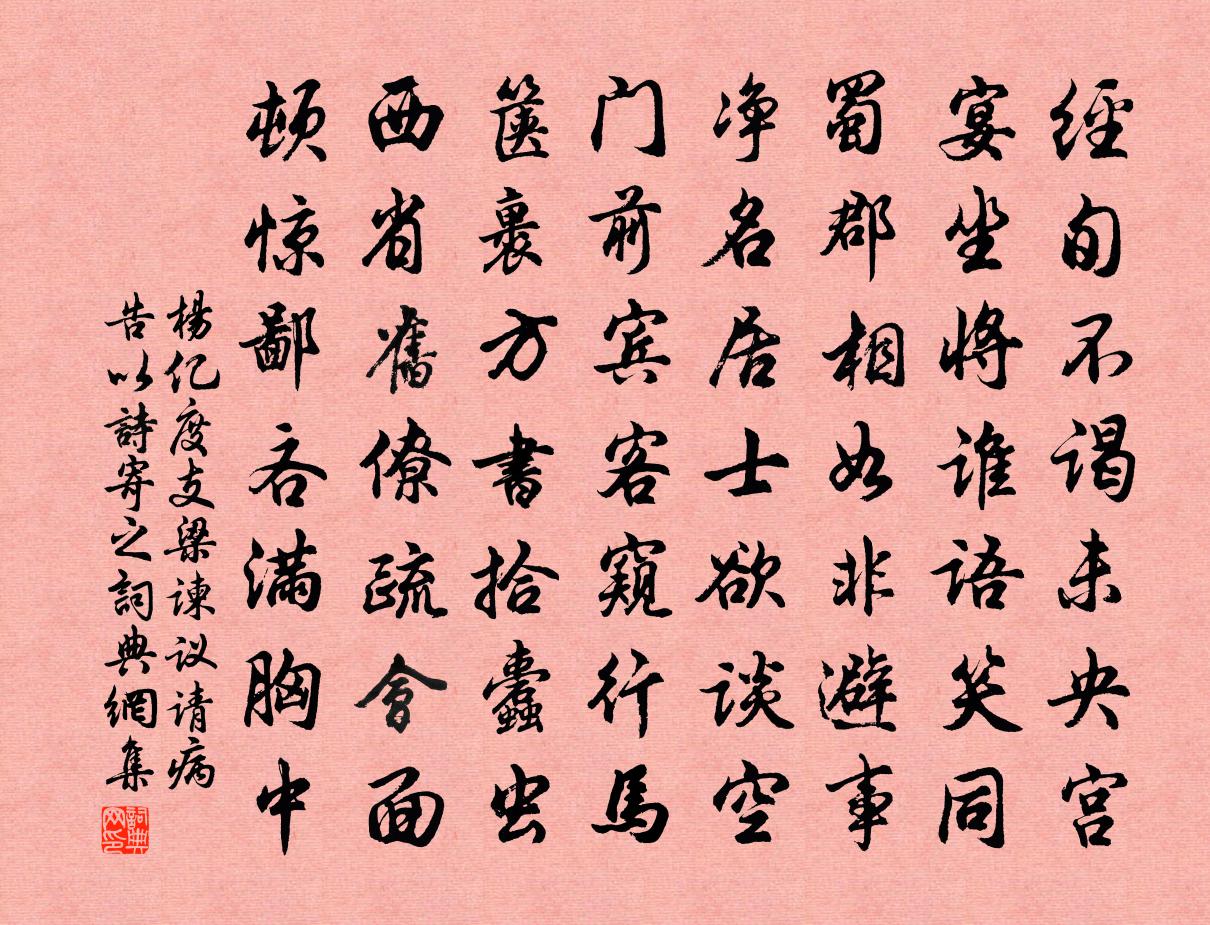 經旬不谒未央宫
宴坐将谁语笑同
蜀郡相如非避事
净名居士欲谈空
门前宾客窥行馬
箧裏方書拾蠹虫
西省舊僚疏會面
顿惊鄙吝满胸中
楊亿度支梁谏议请病
告以詩寄之詞典網集
詞典网印